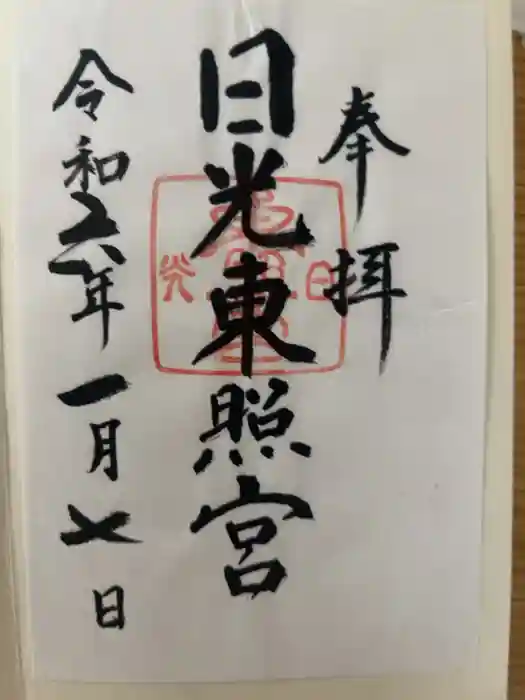 奉拝
日光東照宮
令和六年一月七日